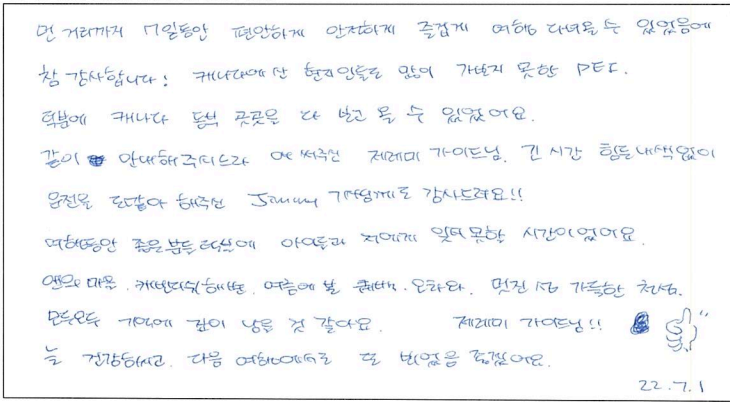 먼 거리까지 7일동안 편안하게 안전하게 즐겁게 여행 다녀올 수 있었음에
참 감사합니다! 캐나다에 산 현지인들도 많이 가보지 못한 PEI.
덕분에 캐나다 동부 곳곳을 다 보고 올 수 있었어요.
같이 안내해주시느라 애 써주신 제레미 가이드님. 긴 시간 힘든내색없이
운전을 도맡아 해주신 Jimmy 기사님께도 감사드려요!!
여행동안 좋은분들 덕분에 아이들과 저에게 잊지못할 시간이었어요.
앤의 마을. 캐번디쉬 해변. 여름에 본 퀘백. 오타와. 멋진 섬 가득한 천섬.
모두모두 기억에 깊이 남을 것 같아요. 제레미 가이드님!!
늘 건강하시고. 다음 여행에서도 또 뵈었음 좋겠어요.
22.7.1